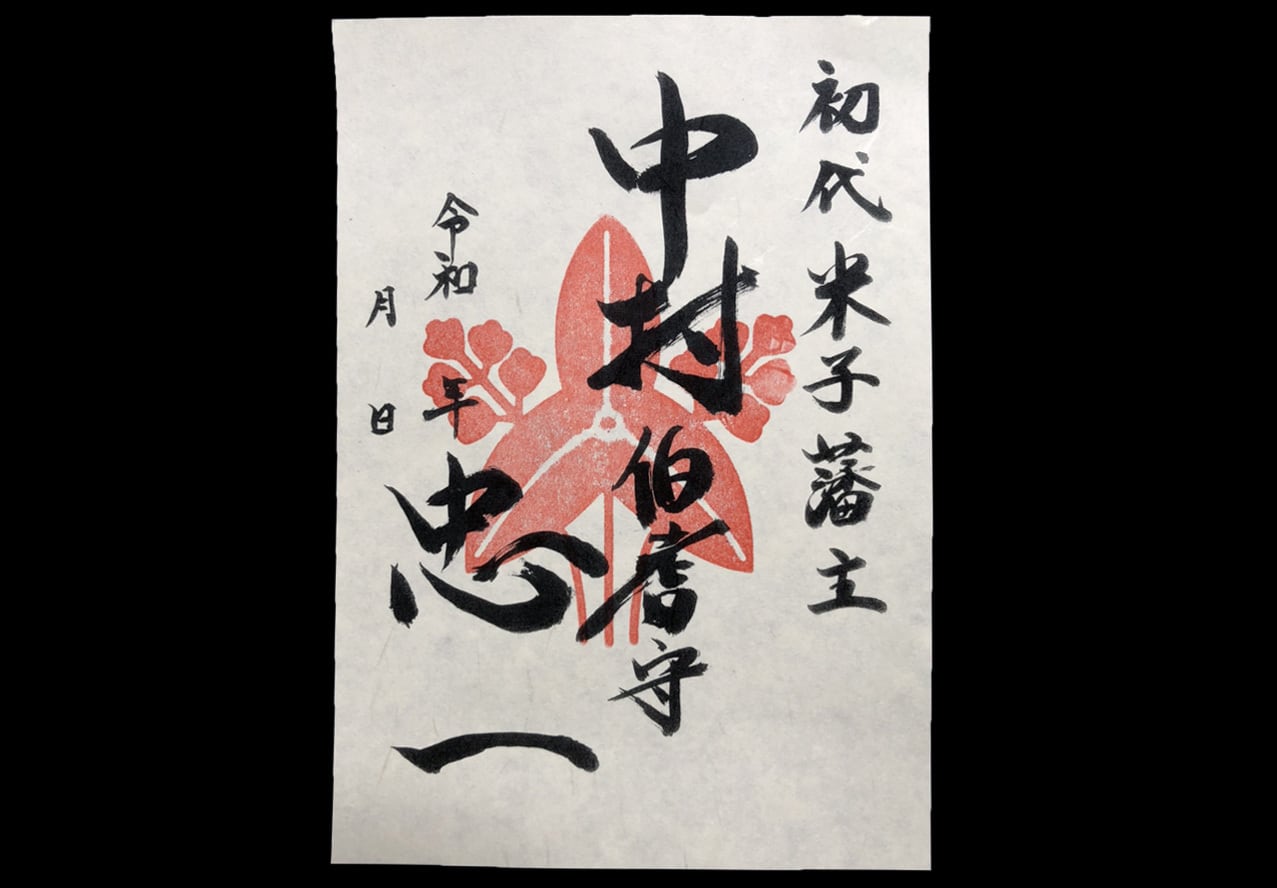 初代米子藩主
中村伯耆守
忠一
令和 年
月 日